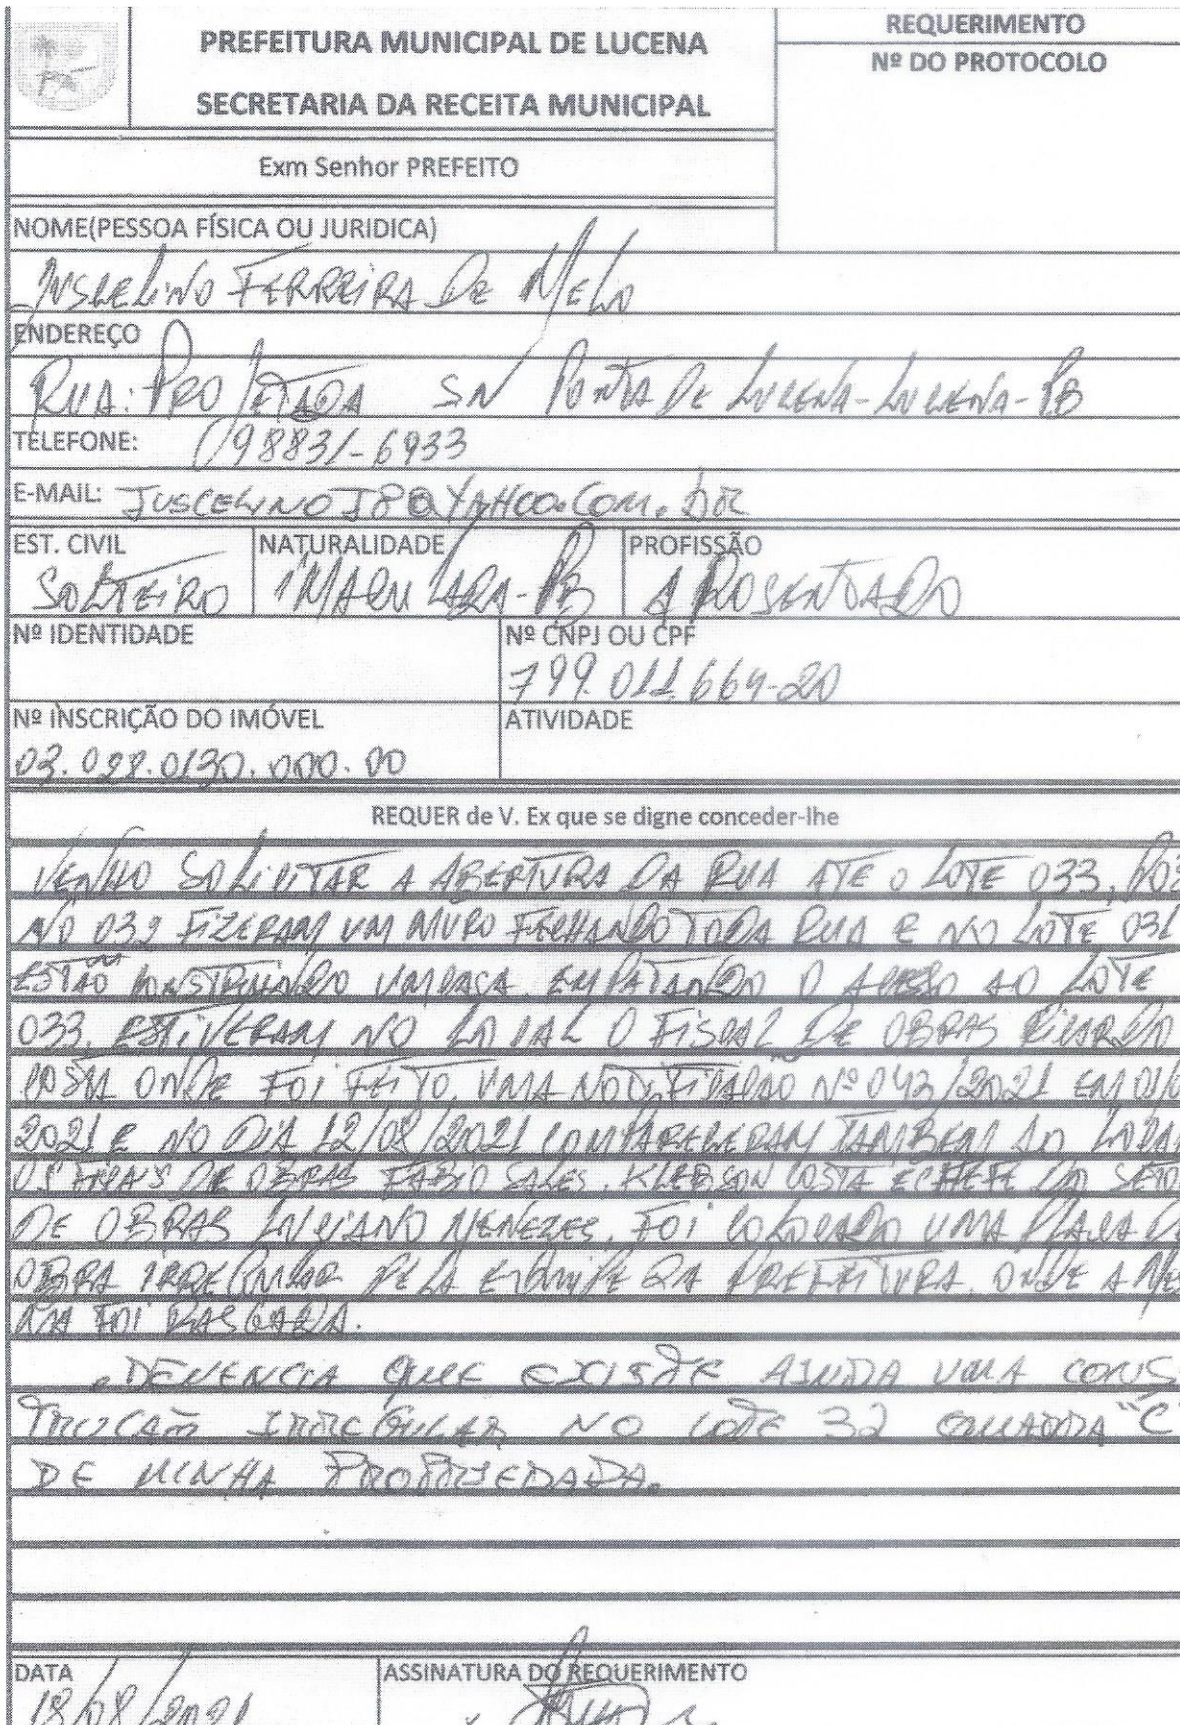 PREFEITURA MUNICIPAL DE LUCENA
SECRETARIA DA RECEITA MUNICIPAL
REQUERIMENTO
Nº DO PROTOCOLO
Exm Senhor PREFEITO
NOME(PESSOA FÍSICA OU JURIDICA)
JUSCELINO FERREIRA DE MELO
ENDEREÇO
RUA: PROJETADA SN PONTA DE LUCENA-LUCENA-PB
TELEFONE: 98831-6933
E-MAIL: JUSCELINOJ8@YAHOO.COM.br
EST. CIVIL
SOLTEIRO
NATURALIDADE
IMACULADA-PB
PROFISSÃO
APOSENTADO
Nº IDENTIDADE
Nº CNPJ OU CPF
799.011.664-20
Nº INSCRIÇÃO DO IMÓVEL
03.098.0130.000.00
ATIVIDADE
REQUER de V. Ex que se digne conceder-lhe
VENHO SOLICITAR A ABERTURA DA RUA ATE O LOTE 033,
NO 032 FIZERAM UM MURO FECHANDO TODA RUA E NO LOTE 031
ESTÃO CONSTRUINDO UMA CASA. EMPATANDO O ACESSO AO LOTE
033. ESTIVERAM NO LOCAL O FISCAL DE OBRAS RICARDO
COSTA ONDE FOI FEITO. UMA NOTIFICAÇÃO Nº 042/2021 EM
2021 E NO DIA 12/08/2021 COMPARECERAM TAMBEM AO LOCAL
OS FISCAIS DE OBRAS FABIO SALES. KLEBSON COSTA E CHEFE DO SETOR
DE OBRAS LUCIANO MENEZES. FOI COLOCADO UMA PLACA DE
OBRA IRREGULAR PELA EQUIPE DA PREFEITURA. ONDE A MES
MA FOI RASGADA.
QUE EXISTE AINDA UMA CONS-
TRUCÃO IRREGULAR NO LOTE 32 QUADRA "C"
DE MINHA PROPRIEDADA.
DATA
18/08/2021
ASSINATURA DO REQUERIMENTO